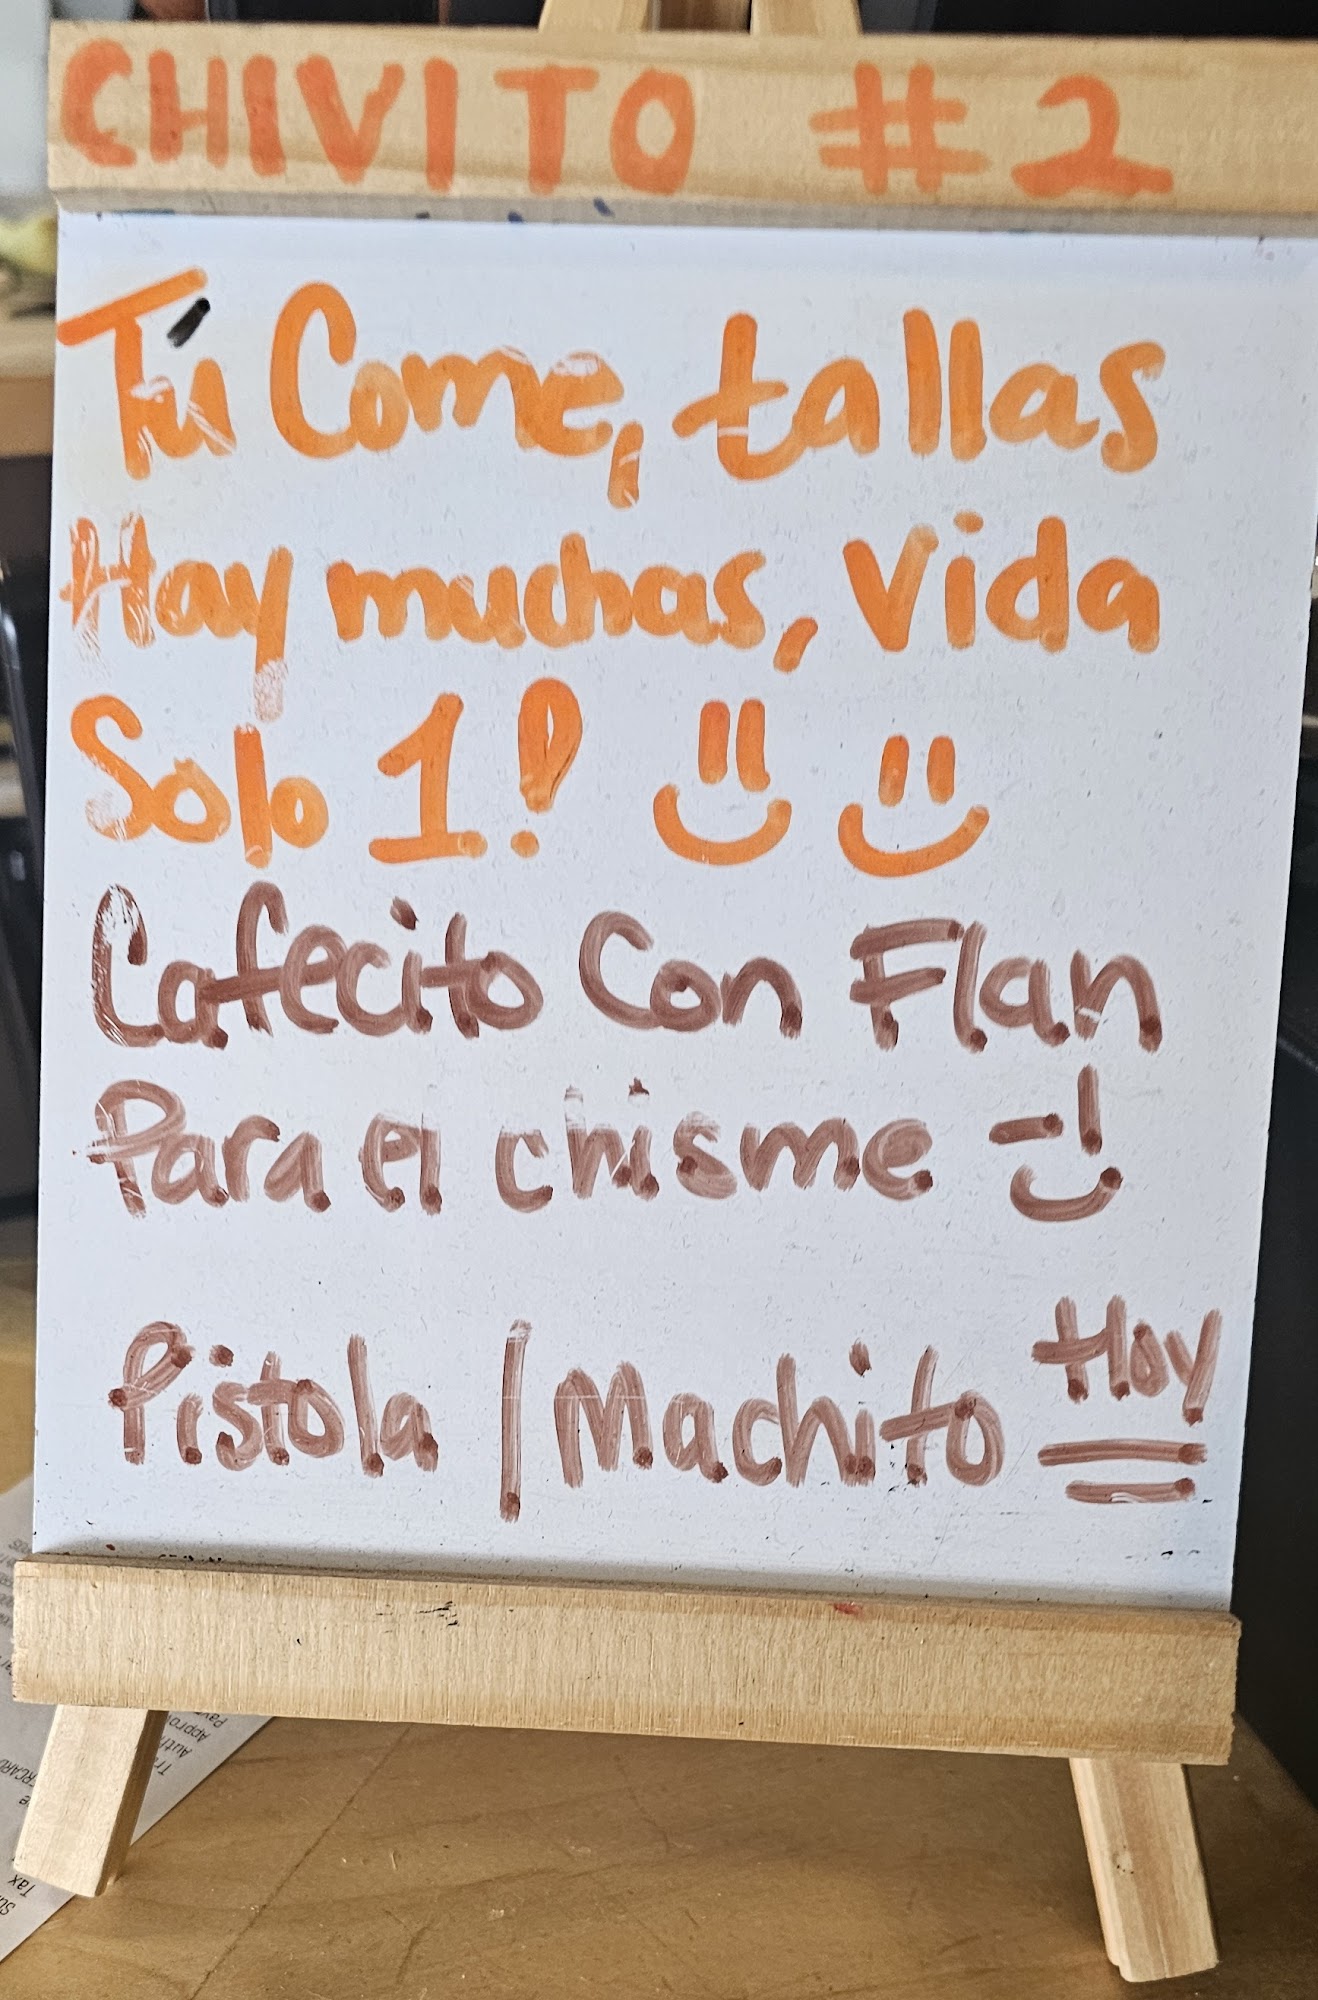 CHIVITO #2
Tú Come, tallas
Hay muchas, Vida
Solo 1!
Cafecito Con Flan
Para el chisme
Hoy
Pistola | Machito
Tax